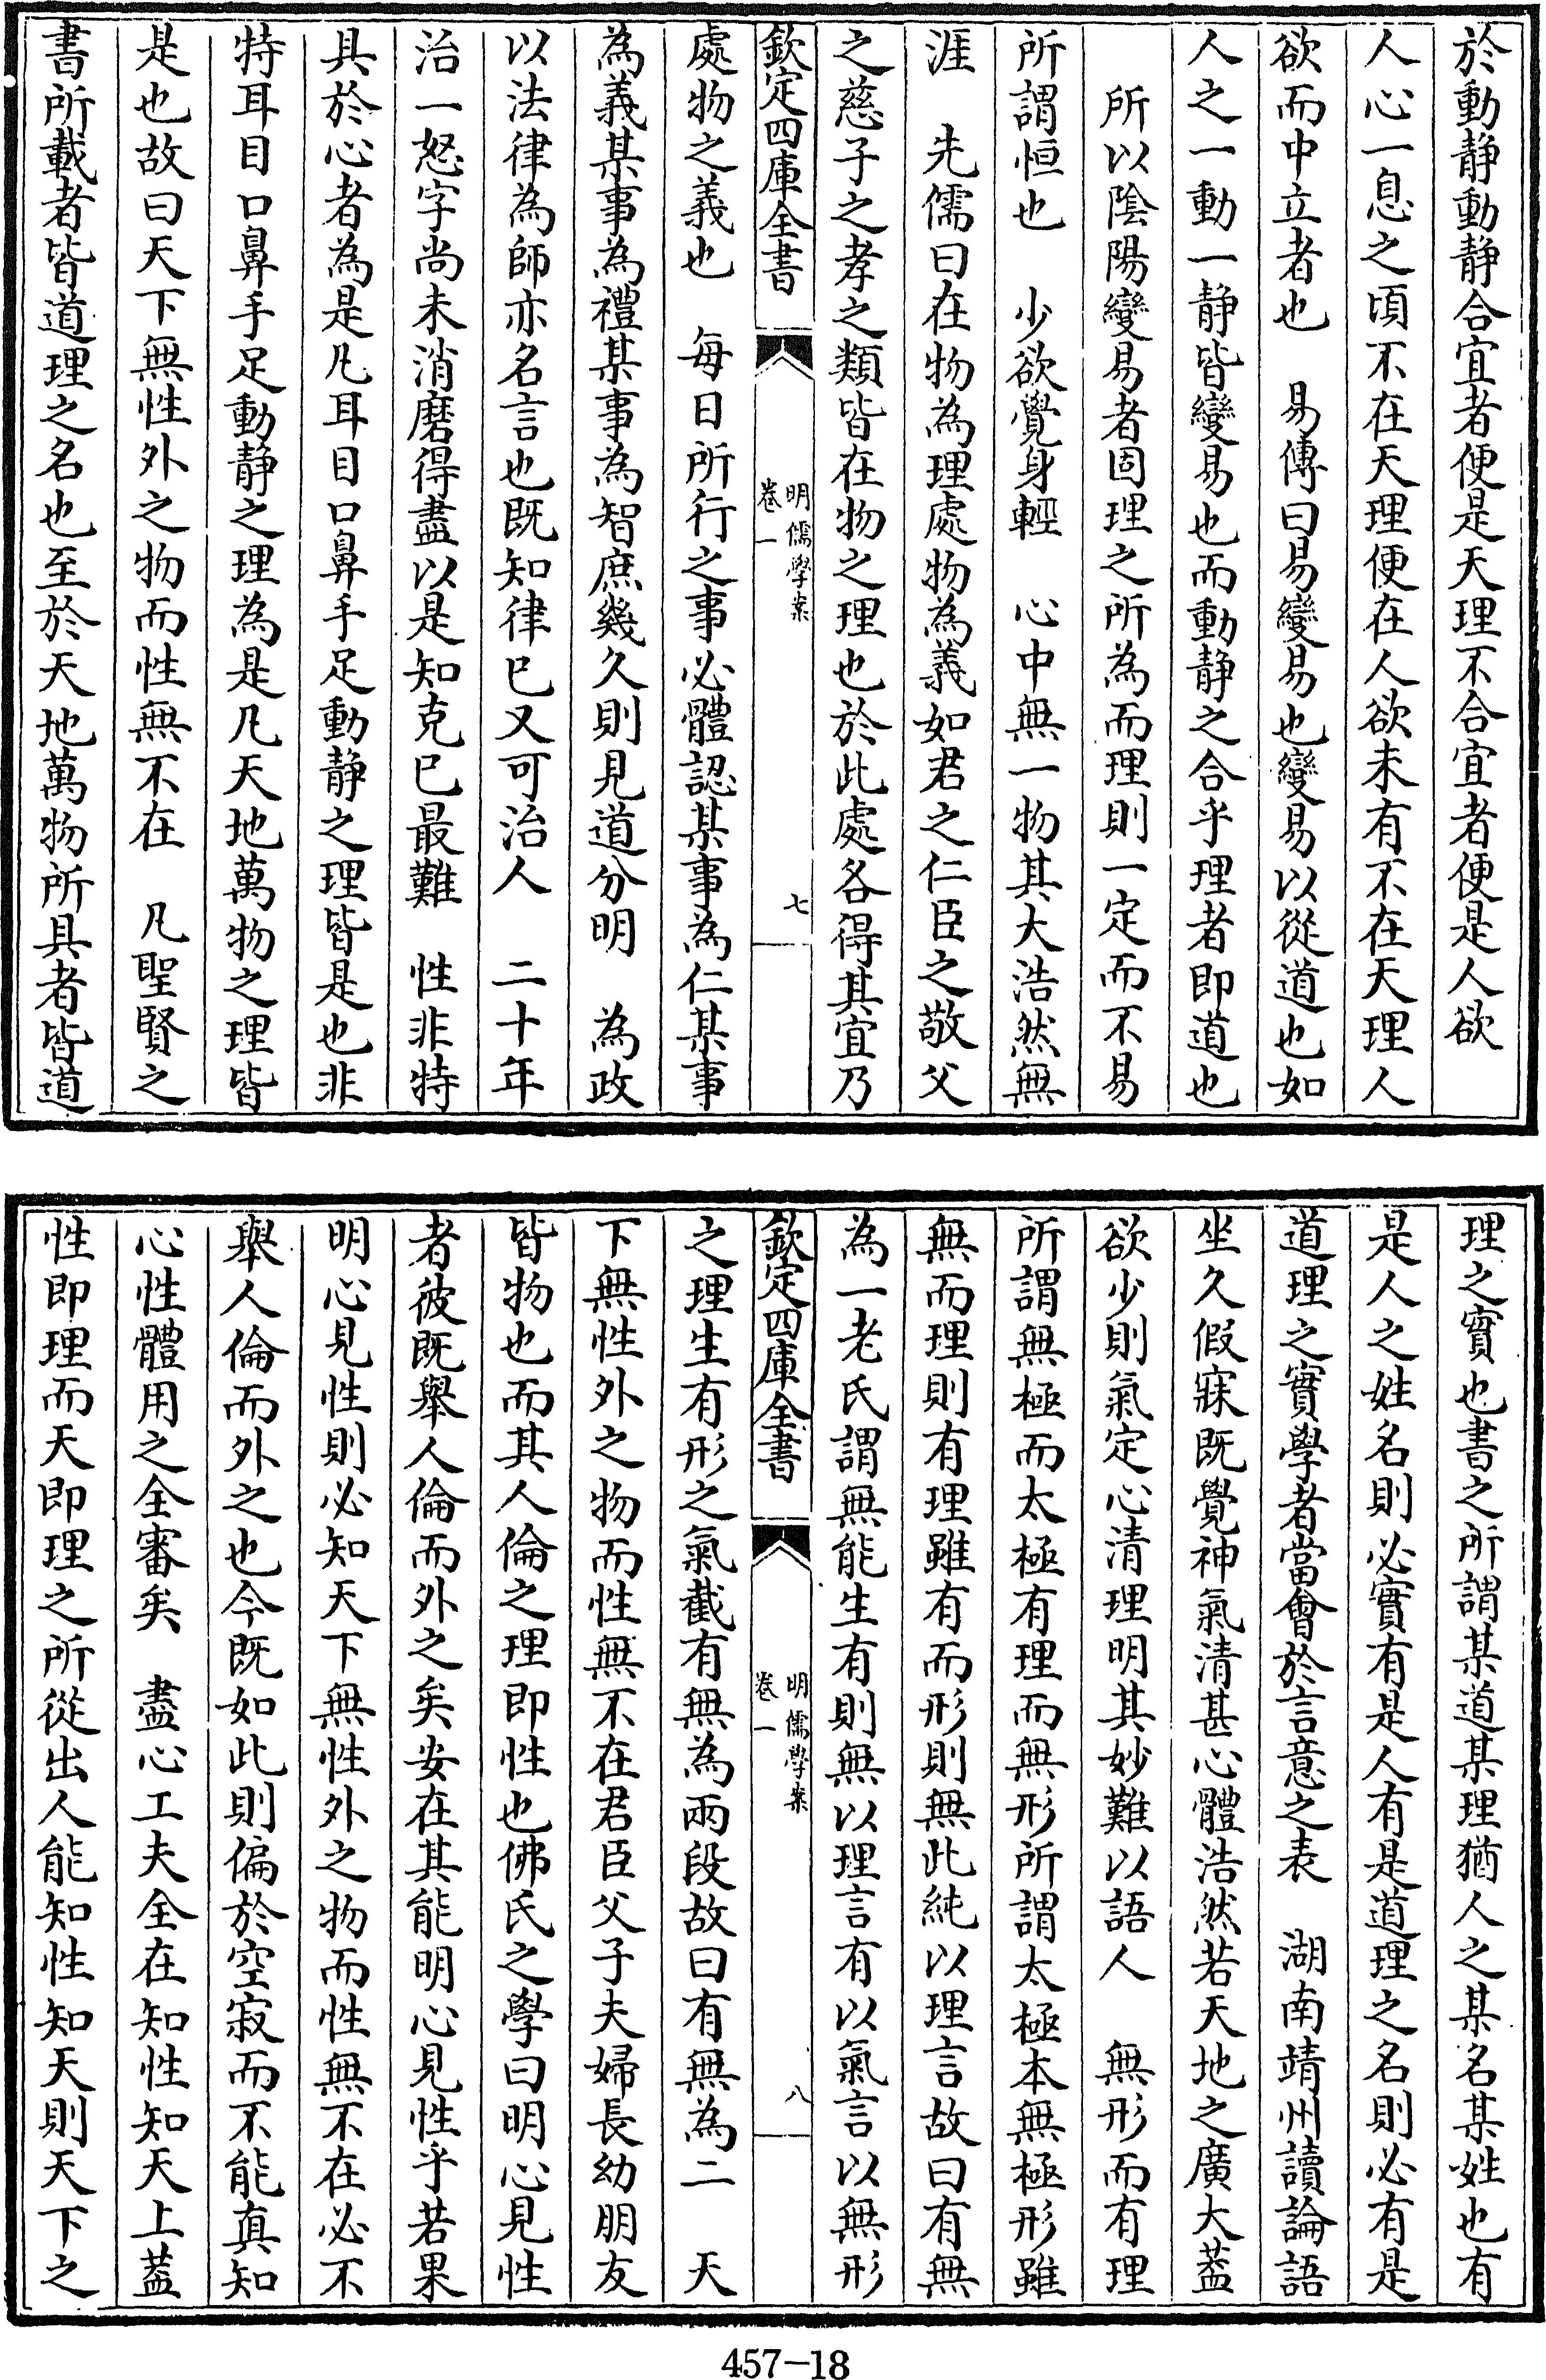 於動静動静合宜者便是天理不合宜者便是人欲
人心一息之頃不在天理便在人欲未有不在天理人
欲而中立者也　易傳曰易變易也變易以從道也如
人之一動一静皆變易也而動静之合乎理者即道也
所以陰陽變易者固理之所為而理則一定而不易
所謂恒也　少欲覺身輕　心中無一物其大浩然無
涯　先儒曰在物為理處物為義如君之仁臣之敬父
之慈子之孝之類皆在物之理也於此處各得其宜乃
欽定四庫全書
明儒學案
卷一
七
處物之義也　每日所行之事必體認某事為仁某事
為義某事為禮某事為智庶幾久則見道分明　為政
以法律為師亦名言也既知律已又可治人　二十年
治一怒字尚未消磨得盡以是知克已最難　性非特
具於心者為是凡耳目口鼻手足動静之理皆是也非
特耳目口鼻手足動静之理為是凡天地萬物之理皆
是也故曰天下無性外之物而性無不在　凡聖賢之
書所載者皆道理之名也至於天地萬物所具者皆道
理之實也書之所謂某道某理猶人之某名某姓也有
是人之姓名則必實有是人有是道理之名則必有是
道理之實學者當會於言意之表　湖南靖州讀論語
坐久假寐既覺神氣清甚心體浩然若天地之廣大蓋
欲少則氣定心清理明其妙難以語人　無形而有理
所謂無極而太極有理而無形所謂太極本無極形雖
無而理則有理雖有而形則無此純以理言故曰有無
為一老氏謂無能生有則無以理言有以氣言以無形
欽定四庫全書
明儒學案
卷一
八
之理生有形之氣截有無為兩段故曰有無為二　天
下無性外之物而性無不在君臣父子夫婦長幼朋友
皆物也而其人倫之理即性也佛氏之學曰明心見性
者彼既舉人倫而外之矣安在其能明心見性乎若果
明心見性則必知天下無性外之物而性無不在必不
舉人倫而外之也今既如此則偏於空寂而不能真知
心性體用之全審矣　盡心工夫全在知性知天上蓋
性即理而天即理之所從出人能知性知天則天下之
457-18